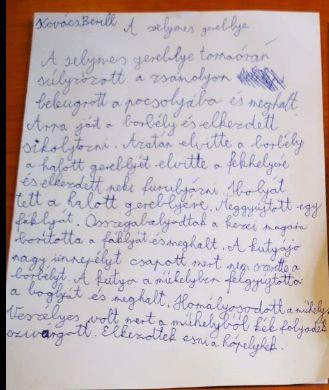 Kovács Berill A selymes gereblye
A selymes gereblye tornaórán
súlyzózott a zsámolyon
beleugrott a pocsolyába és meghalt.
Arra járt a borbély és elkezdett
sikolyozni. Azután elvitte a borbély
a halott gereblyét elvitte a fekhelyére
és elkezdett neki furulyázni. Ibolyát
tett a halott gereblyére. Meggyújtott egy
fáklyát. Összegabalyodtak a kezei magára
borította a fáklyát és meghalt. A kutyája
nagy ünnepélyt csapott mert nem szerette a
borbélyt. A kutya a műhelyben felgyújtotta
a boglyát és meghalt. Homályosodott a műhely
Veszélyes volt mert a műhelyből kék folyadék
szivárgott. Elkezdtek esni a hópelyhek.